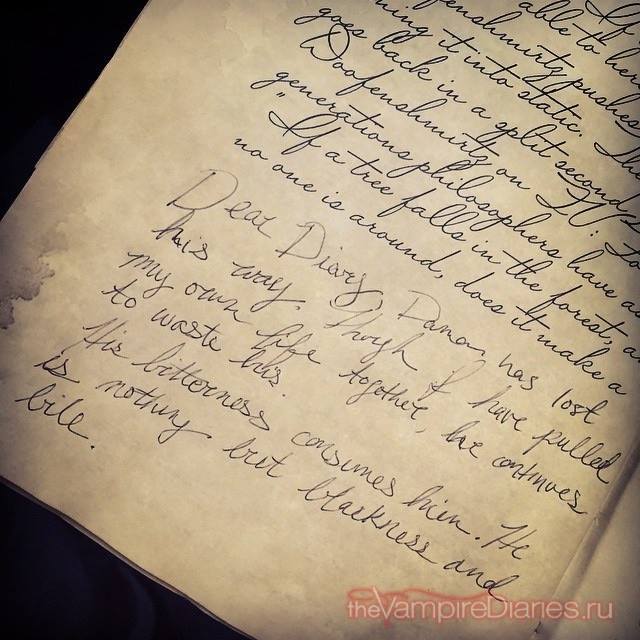 If
able to
pushes
it into static.
goes back in a split second
Doofenshmirtz on
generations philosophers have
"If a tree falls in the forest,
no one is around, does it make a
Dear Diary, Damon has lost
his way. Though I have pulled
my own life together, he continues
to waste his.
His bitterness consumes him. He
is nothing but blackness and
bile.
theVampireDiaries.ru